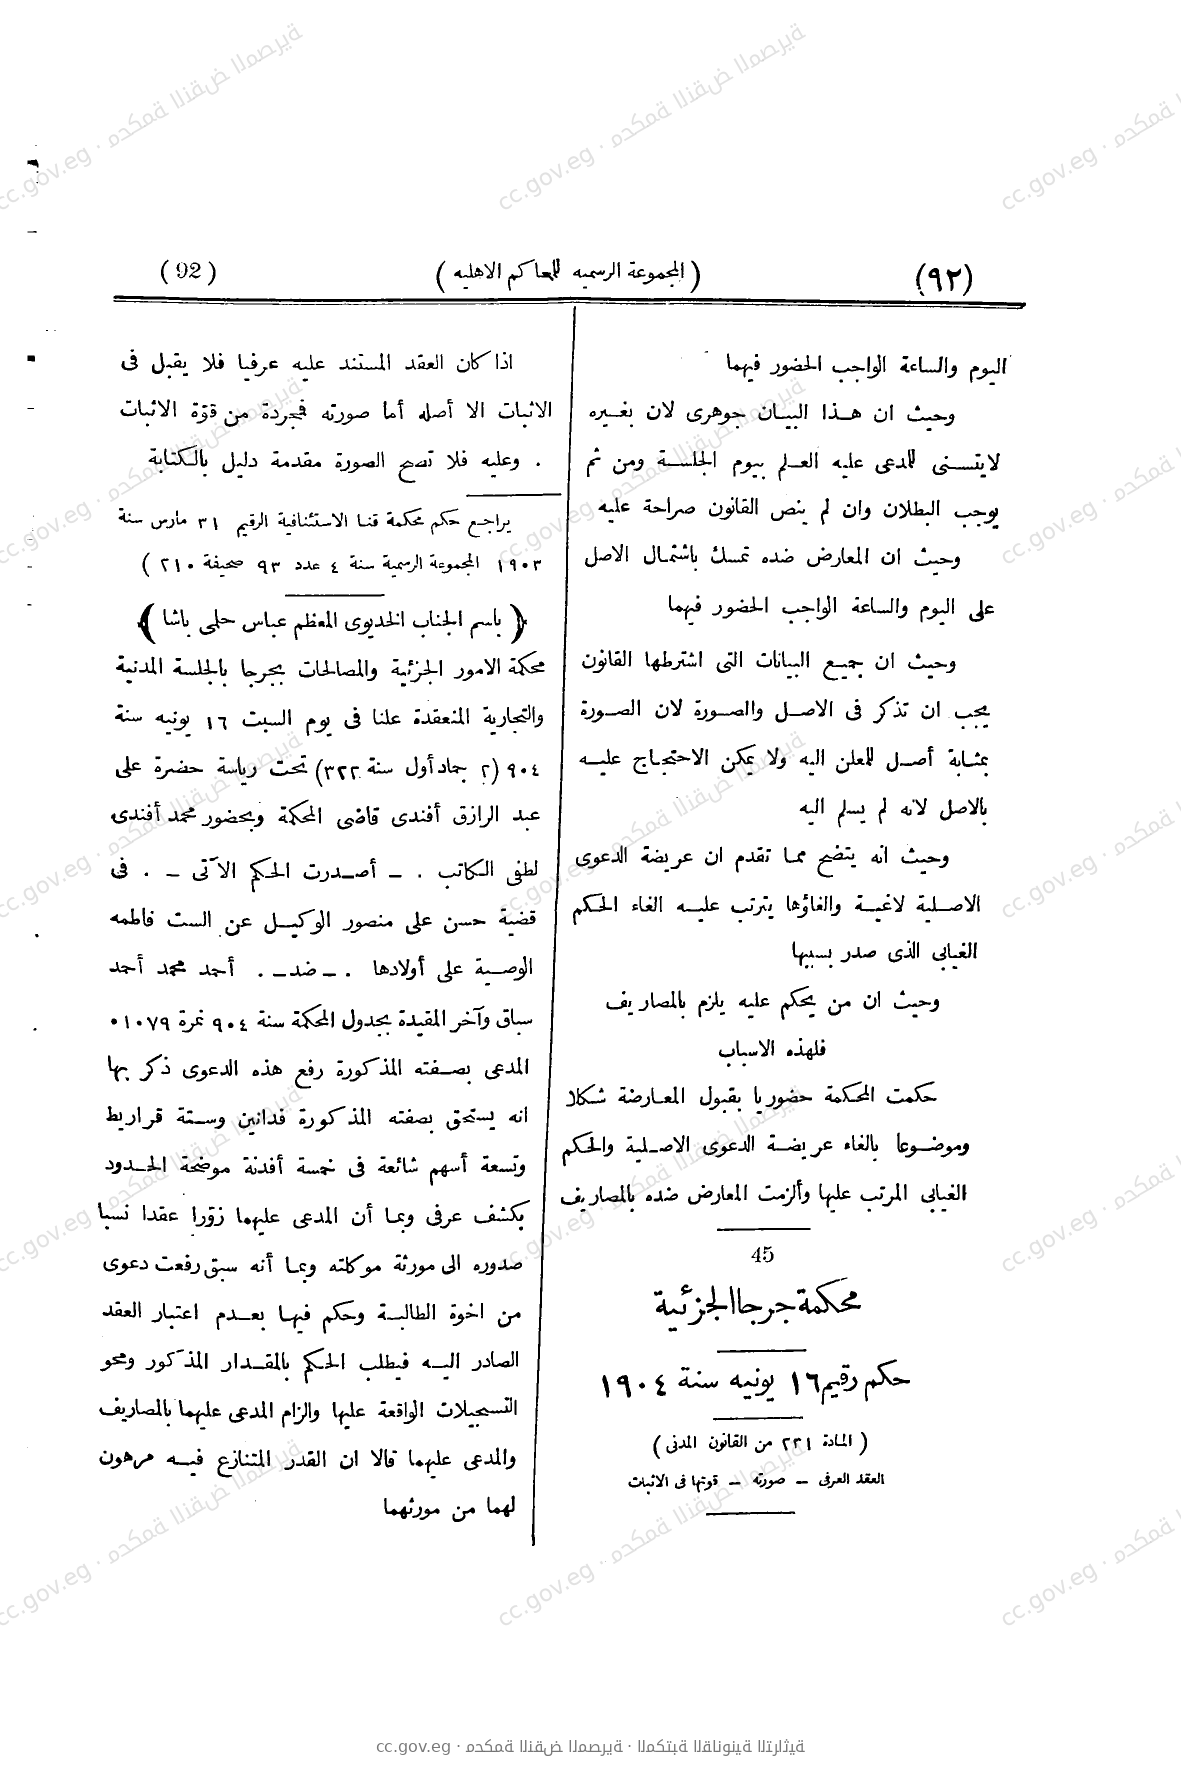 (٩٢)
( المجموعة الرسميه للمحاكم الاهليه )
( 92 )
اليوم والساعة الواجب الحضور فيهما
وحيث ان هذا البيان جوهرى لان بغيره
لايتسنى للمدعى عليه العلم بيوم الجلسة ومن ثم
يوجب البطلان وان لم ينص القانون صراحة عليه
وحيث ان المعارض ضده تمسك باشتمال الاصل
على اليوم والساعة الواجب الحضور فيهما
وحيث ان جميع البيانات التى اشترطها القانون
يجب ان تذكر فى الاصل والصورة لان الصورة
بمثابة أصل للمعلن اليه ولا يمكن الاحتجاج عليه
بالاصل لانه لم يسلم اليه
وحيث انه يتضح مما تقدم ان عريضة الدعوى
الاصلية لاغية والغاؤها يترتب عليه الغاء الحكم
الغيابى الذى صدر بسببها
وحيث ان من يحكم عليه يلزم بالمصاريف
فلهذه الاسباب
حكمت المحكمة حضوريا بقبول المعارضة شكلا
وموضوعا بالغاء عريضة الدعوى الاصلية والحكم
الغيابى المرتب عليها وألزمت المعارض ضده بالمصاريف
45
محكمة جرجا الجزئية
حكم رقيم ١٦ يونيه سنة ١٩٠٤
( المادة ٢٢١ من القانون المدنى )
العقد العرفى – صورته – قوتها فى الاثبات
اذا كان العقد المستند عليه عرفيا فلا يقبل فى
الاثبات الا أصله أما صورته فمجردة من قوّة الاثبات
. وعليه فلا تصح الصورة مقدمة دليل بالكتابة
يراجع حكم محكمة قنا الاستئنافية الرقيم ٣١ مارس سنة
١٩٠٣ المجموعة الرسمية سنة ٤ عدد ٩٣ صحيفة ٢١٠ )
﴿ باسم الجناب الخديوى المعظم عباس حلمى باشا ﴾
محكمة الامور الجزئية والمصالحات بجرجا بالجلسة المدنية
والتجارية المنعقدة علنا فى يوم السبت ١٦ يونيه سنة
٩٠٤ (٢ جماد أول سنة ٣٢٢) تحت رياسة حضرة على
عبد الرازق أفندى قاضى المحكمة وبحضور محمد أفندى
لطفى الكاتب . – أصدرت الحكم الآتى – . فى
قضية حسن على منصور الوكيل عن الست فاطمه
الوصية على أولادها . – ضد – . أحمد محمد أحمد
سباق وآخر المقيدة بجدول المحكمة سنة ٩٠٤ نمرة ١٠٧٩.
المدعى بصفته المذكورة رفع هذه الدعوى ذكر بها
انه يستحق بصفته المذكورة فدانين وستة قراريط
وتسعة أسهم شائعة فى خمسة أفدنة موضحة الحدود
بكشف عرفى وبما أن المدعى عليهما زوّرا عقدا نسبا
صدوره الى مورثة موكلته وبما أنه سبق رفعت دعوى
من اخوة الطالبة وحكم فيها بعدم اعتبار العقد
الصادر اليه فيطلب الحكم بالمقدار المذكور ومحو
التسجيلات الواقعة عليها والزام المدعى عليهما بالمصاريف
والمدعى عليهما قالا ان القدر المتنازع فيه مرهون
لهما من مورثهما
cc.gov.eg · محكمة النقض المصرية · المكتبة القانونية التراثية